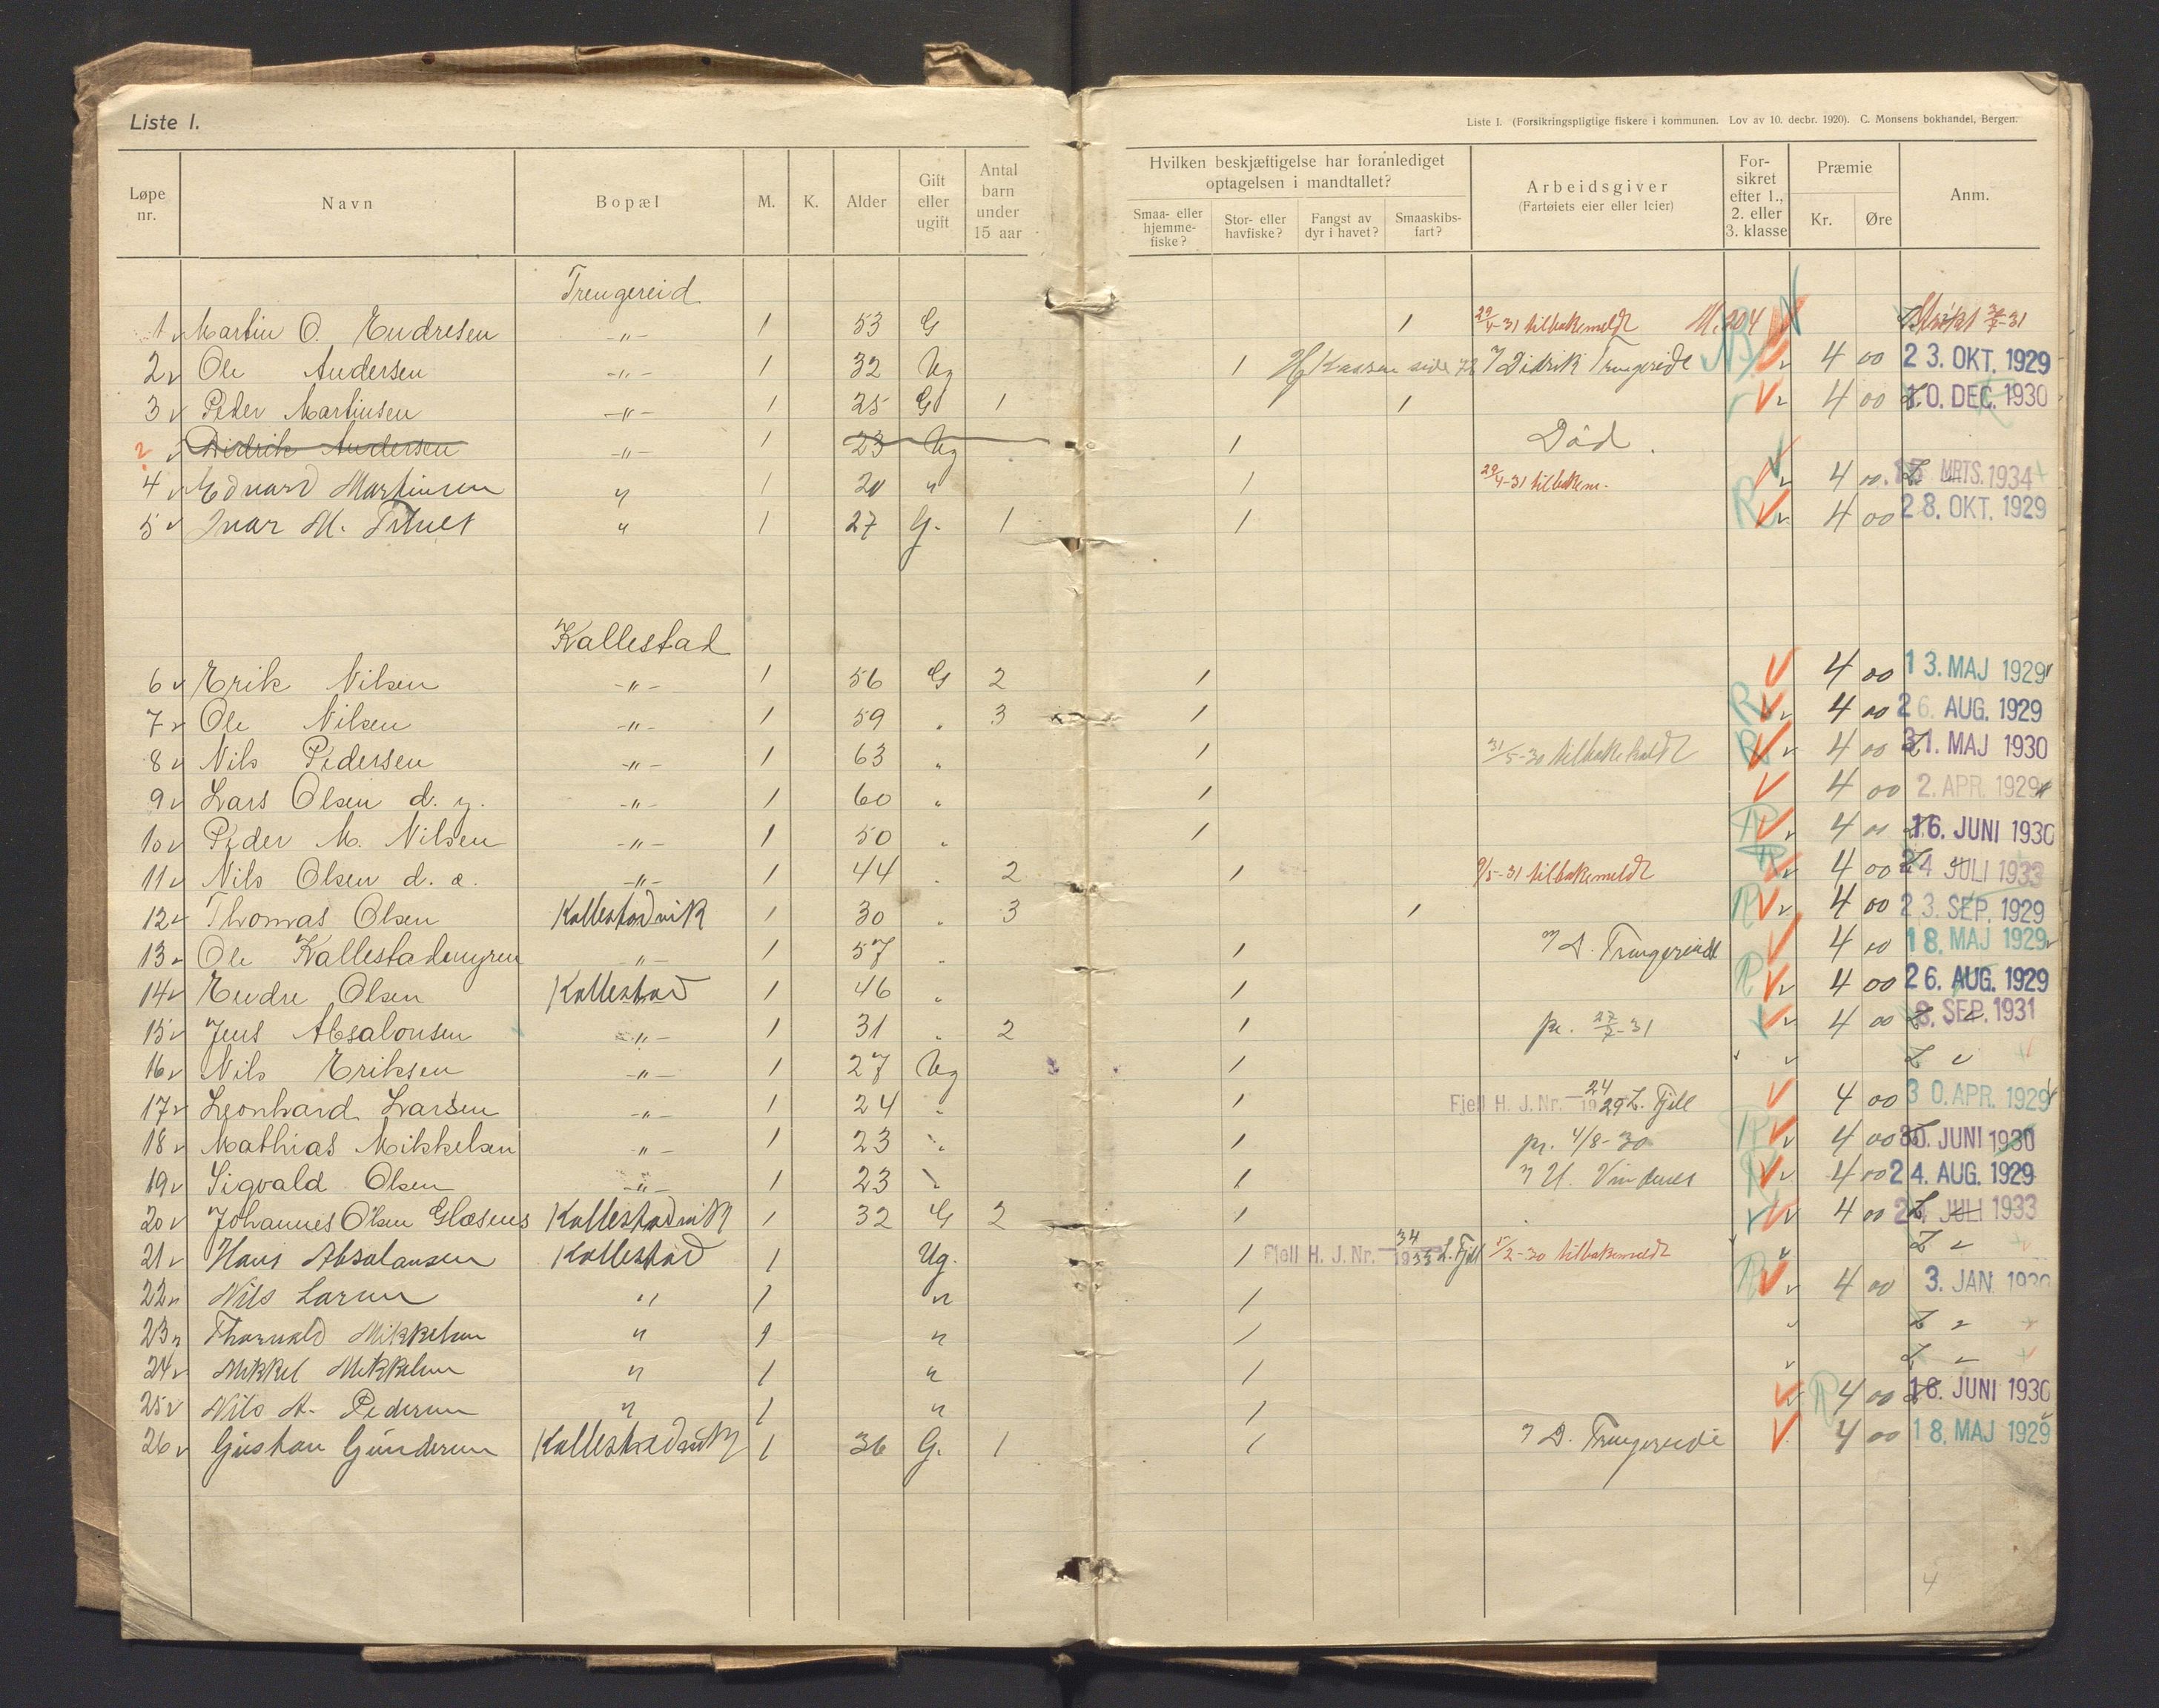 Liste I.
Liste I. (Forsikringspligtige fiskere i kommunen. Lov av 10. decbr. 1920). C. Monsens bokhandel, Bergen.
Løpe nr. Navn Bopæl M. K. Alder Gift eller ugift Antal barn under 15 aar Hvilken beskjæftigelse har foranlediget optagelsen i mandtallet? Smaa- eller hjemmefiske? Stor- eller havfiske? Fangst av dyr i havet? Smaaskibsfart? Arbeidsgiver (Fartøiets eier eller leier) Forsikret efter 1., 2. eller 3. klasse Præmie Kr. Øre Anm.
Trengereid
1 v Martin O. Endresen -"- 1 53 G 1 29/4-31 tilbakemeldt
2 v Ole Andersen -"- 1 32 Ug 1 Didrik Trengereide v 4 00 23. OKT. 1929
3 v Peder Martinsen -"- 1 25 G 1 1 v 4 00 10. DEC. 1930
? v Didrik Andersen -"- 1 23 Ug 1 Död.
4 v Edvard Martinsen " 1 20 " 1 29/4-31 tilbakem. v 4 00 MRTS. 1934
5 v Ivar M. " 1 27 G. 1 1 R v 4 00 28. OKT. 1929
Kallestad
6 v Erik Nilsen -"- 1 56 G 2 1 v 4 00 13. MAJ 1929
7 v Ole Nilsen -"- 1 59 " 3 1 R v 4 00 26. AUG. 1929
8 v Nils Pedersen -"- 1 63 " 1 31/5-30 R v 4 00 31. MAJ 1930
9 v Lars Olsen d. y. -"- 1 60 " 1 v 4 00 2. APR. 1929
10 v Peder M. Nilsen -"- 1 50 " 1 R v 4 00 16. JUNI 1930
11 v Nils Olsen d. e. -"- 1 44 " 2 1 9/5-31 tilbakemeldt R v 4 00 24 JULI 1933
12 v Thomas Olsen Kallestadvik 1 30 " 3 1 R v 4 00 23. SEP. 1929
13 v Ole Kallestadmyren -"- 1 57 " 1 D. Trengereide v 4 00 18. MAJ 1929
14 v Endre Olsen Kallestad 1 46 " 1 R v 4 00 26. AUG. 1929
15 v Jens Absalonsen -"- 1 31 " 2 1 pr. 27/7-31 v 4 00 8. SEP. 1931
16 v Nils Eriksen -"- 1 27 Ug 1 v v Z v
17 v Leonhard Larsen -"- 1 24 " 1 Fjell H. J. Nr. 24 1929 L. Fjell v 4 00 30. APR. 1929
18 v Mathias Mikkelsen -"- 1 23 " 1 pr. 4/8-30 R v 4 00 30. JUNI 1930
19 v Sigvald Olsen -"- 1 23 " 1 R v 4 00 24. AUG. 1929
20 v Johannes Olsen Kallestadvik 1 32 G 2 1 v 4 00 JULI 1933
21 v Hans Absalonsen Kallestad 1 Ug. 1 Fjell H. J. Nr. 34 1933 L. Fjell 5/2-30 tilbakemeldt v Z v
22 v Nils Larsen " 1 " 1 R v 4 00 3. JAN. 1930
23 v Thorvald Mikkelsen " 1 " 1 v Z v
24 v Mikkel Mikkelsen " 1 " 1 v Z v
25 v Nils A. Pedersen " 1 " 1 v R 4 00 16. JUNI 1930
26 v Gustav Gundersen Kallestadvik 1 36 G. 1 1 D. Trengereide v 4 00 18. MAJ 1929
4